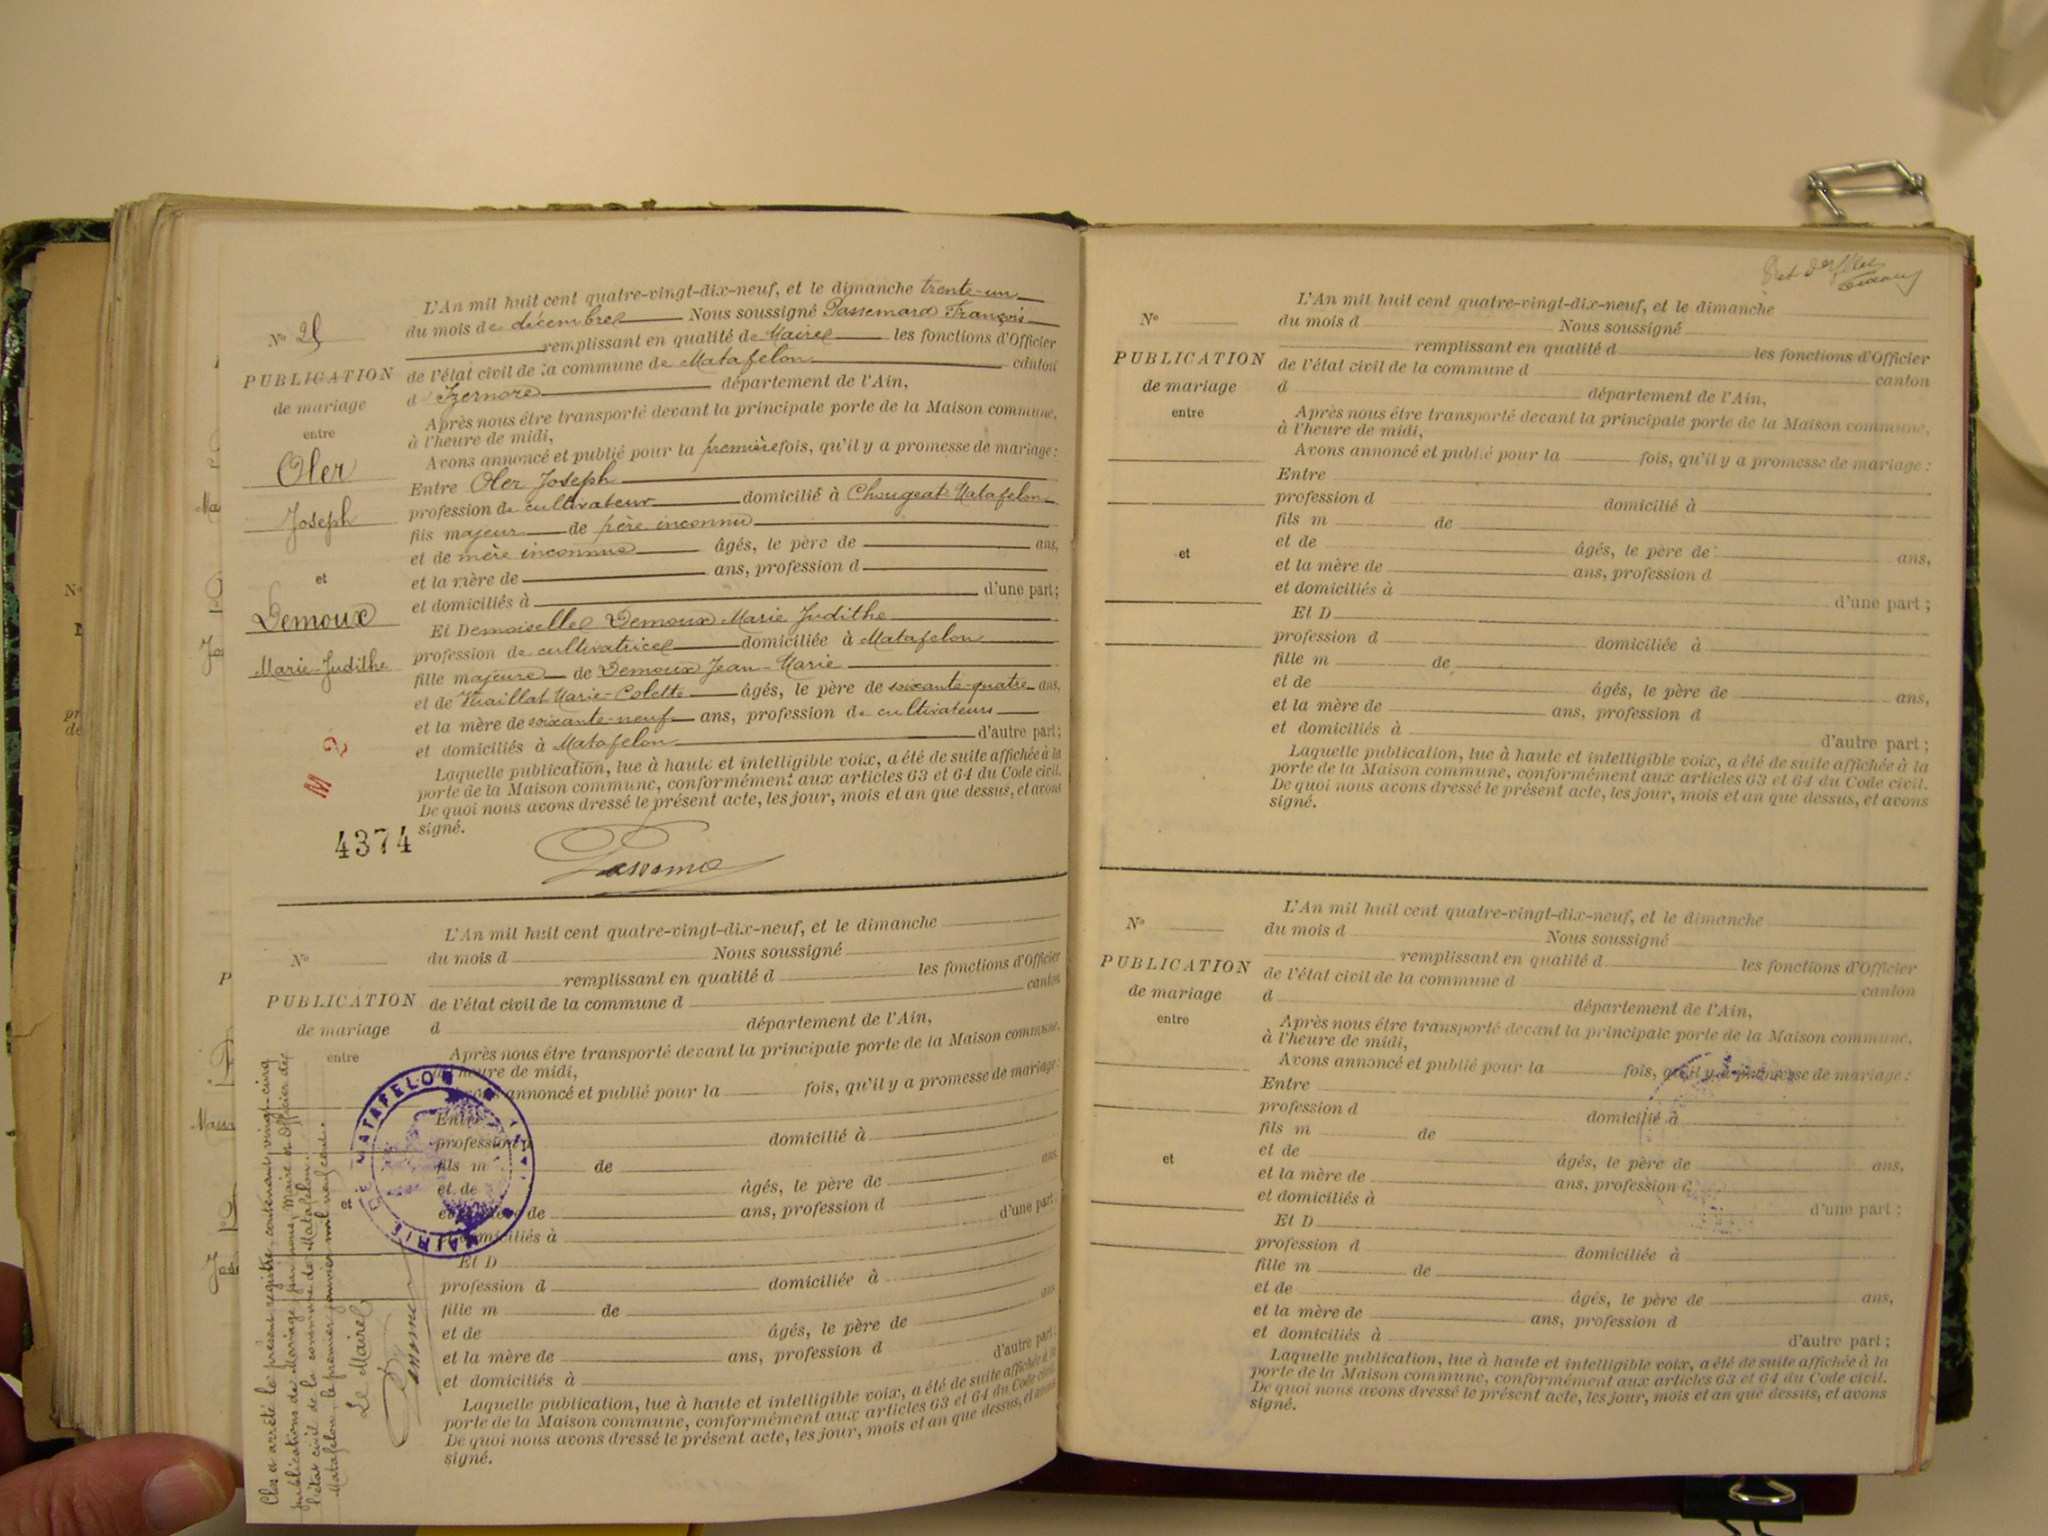 L'An mil huit cent quatre-vingt-dix-neuf, et le dimanche trente-un
du mois de décembre Nous soussigné Passemard François
remplissant en qualité de Maire les fonctions d'Officier
de l'état civil de la commune de Matafelon canton
d'Izernore département de l'Ain,
Après nous être transporté devant la principale porte de la Maison commune,
à l'heure de midi,
Avons annoncé et publié pour la première fois, qu'il y a promesse de mariage :
Entre Oler Joseph
profession de cultivateur domicilié à Chougeat Matafelon
fils majeur de père inconnu
et de mère inconnue âgés, le père de ans,
et la mère de ans, profession d
et domiciliés à d'une part ;
Et Demoiselle Demoux Marie Judithe
profession de cultivatrice domiciliée à Matafelon
fille majeure de Demoux Jean-Marie
et de Marie-Colette âgés, le père de soixante-quatre ans,
et la mère de soixante-neuf ans, profession de cultivateurs
et domiciliés à Matafelon d'autre part ;
Laquelle publication, lue à haute et intelligible voix, a été de suite affichée à la
porte de la Maison commune, conformément aux articles 63 et 64 du Code civil.
De quoi nous avons dressé le présent acte, les jour, mois et an que dessus, et avons
signé.
No 25
PUBLICATION
de mariage
entre
Oler
Joseph
et
Demoux
Marie-Judithe
M 2
4374
L'An mil huit cent quatre-vingt-dix-neuf, et le dimanche
du mois d Nous soussigné
remplissant en qualité d les fonctions d'Officier
de l'état civil de la commune d canton
d département de l'Ain,
Après nous être transporté devant la principale porte de la Maison commune,
heure de midi,
annoncé et publié pour la fois, qu'il y a promesse de mariage :
Entre
profession d domicilié à
fils m de
et de âgés, le père de ans
de ans, profession d
domiciliés à d'une part
Et D
profession d domiciliée à
fille m de
et de âgés, le père de ans
et la mère de ans, profession d
et domiciliés à d'autre part
Laquelle publication, lue à haute et intelligible voix, a été de suite affichée à la
porte de la Maison commune, conformément aux articles 63 et 64 du Code civil.
De quoi nous avons dressé le présent acte, les jour, mois et an que dessus, et avons
signé.
No
PUBLICATION
de mariage
entre
et
MAIRIE DE MATAFELON
Clos et arrêté le présent registre, contenant vingt-cinq
publications de Mariage par nous, Maire et Officier de
l'état civil de la commune de Matafelon.
Matafelon, le premier janvier mil neuf cent.
Le Maire
L'An mil huit cent quatre-vingt-dix-neuf, et le dimanche
du mois d Nous soussigné
remplissant en qualité d les fonctions d'Officier
de l'état civil de la commune d canton
d département de l'Ain,
Après nous être transporté devant la principale porte de la Maison commune,
à l'heure de midi,
Avons annoncé et publié pour la fois, qu'il y a promesse de mariage :
Entre
profession d domicilié à
fils m de
et de âgés, le père de ans,
et la mère de ans, profession d
et domiciliés à d'une part ;
Et D
profession d domiciliée à
fille m de
et de âgés, le père de ans,
et la mère de ans, profession d
et domiciliés à d'autre part ;
Laquelle publication, lue à haute et intelligible voix, a été de suite affichée à la
porte de la Maison commune, conformément aux articles 63 et 64 du Code civil.
De quoi nous avons dressé le présent acte, les jour, mois et an que dessus, et avons
signé.
No
PUBLICATION
de mariage
entre
et
L'An mil huit cent quatre-vingt-dix-neuf, et le dimanche
du mois d Nous soussigné
remplissant en qualité d les fonctions d'Officier
de l'état civil de la commune d canton
d département de l'Ain,
Après nous être transporté devant la principale porte de la Maison commune,
à l'heure de midi,
Avons annoncé et publié pour la fois, qu'il y a promesse de mariage :
Entre
profession d domicilié à
fils m de
et de âgés, le père de ans,
et la mère de ans, profession d
et domiciliés à d'une part ;
Et D
profession d domiciliée à
fille m de
et de âgés, le père de ans,
et la mère de ans, profession d
et domiciliés à d'autre part ;
Laquelle publication, lue à haute et intelligible voix, a été de suite affichée à la
porte de la Maison commune, conformément aux articles 63 et 64 du Code civil.
De quoi nous avons dressé le présent acte, les jour, mois et an que dessus, et avons
signé.
No
PUBLICATION
de mariage
entre
et